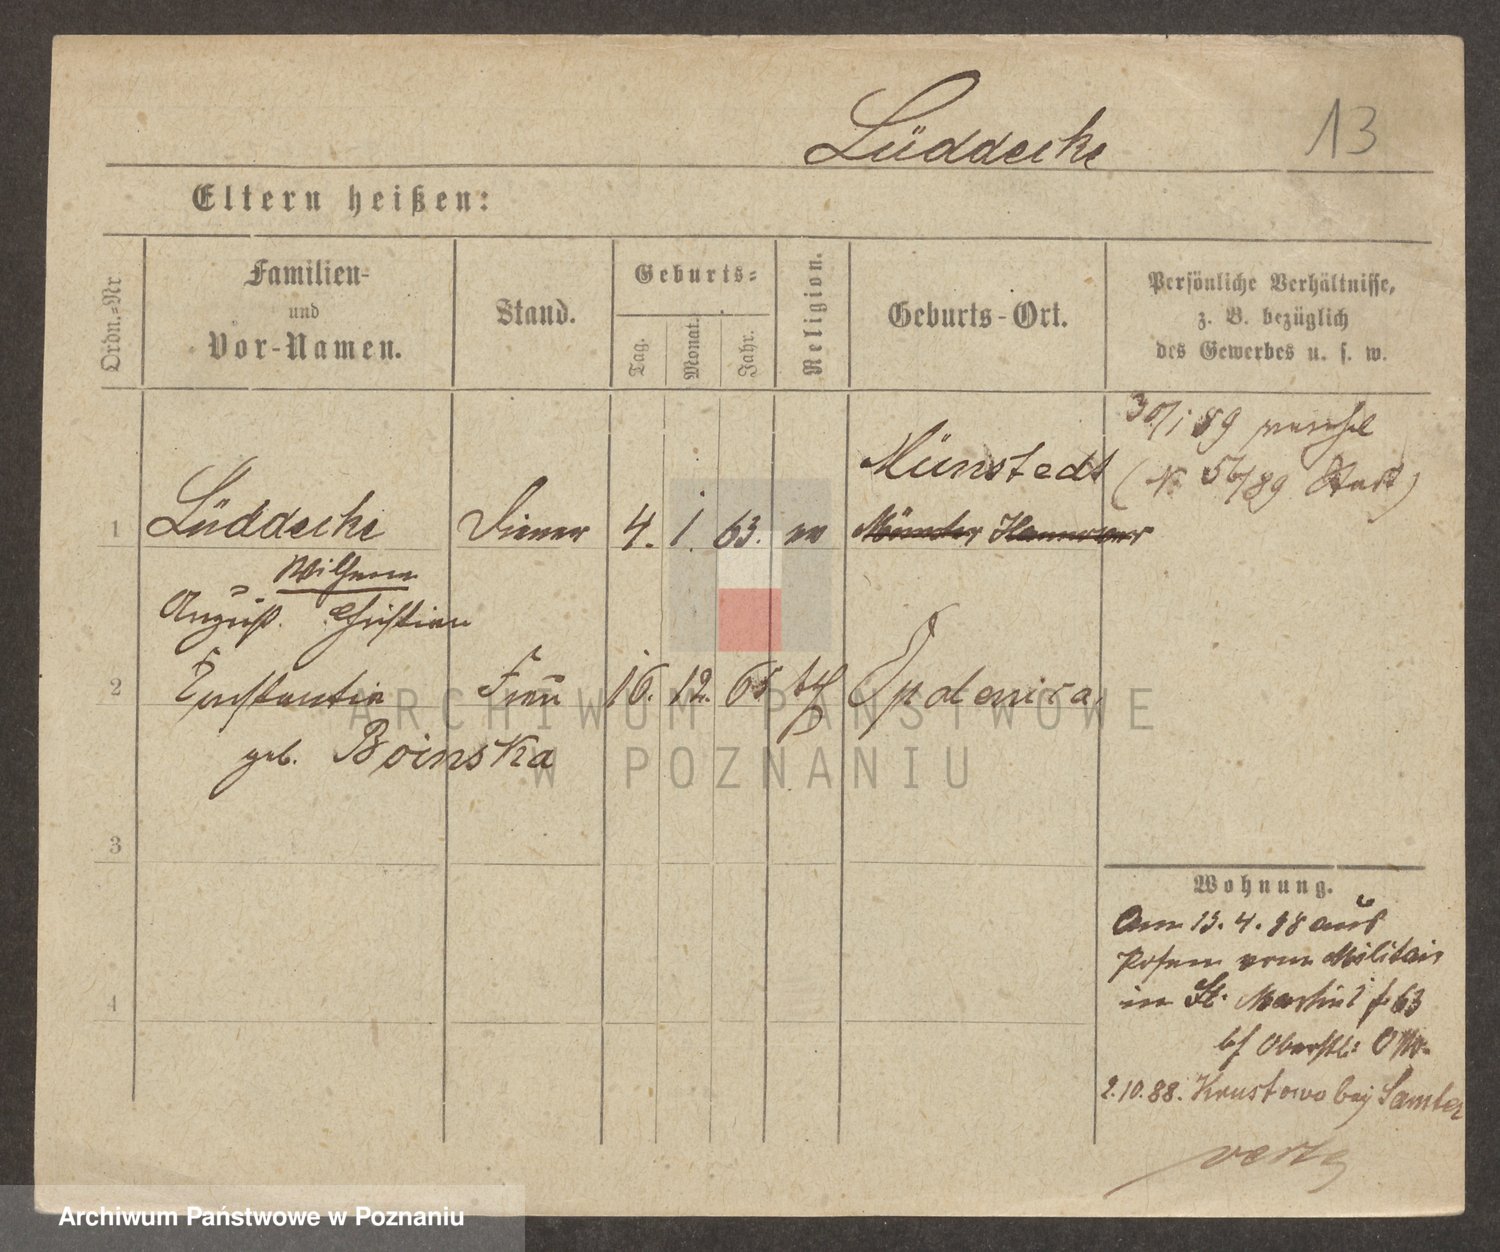 Lüddecke 13
Eltern heißen:
Ordn.-Nr
Familien-
und
Vor-Namen.
Stand.
Geburts-
Tag.
Monat.
Jahr.
Religion.
Geburts-Ort.
Persönliche Verhältnisse,
z. B. bezüglich
des Gewerbes u. s. w.
30/1 89
(N. 56/89)
Münstedt
1 Lüddecke Diener 4. 1. 63. ev Münster Hannover
Wilhelm
August Christian
2 Constantia Frau 16. 12. 65 kth Opalenica,
geb. Boinska
3
4
Wohnung.
Am 13. 4. 88 aus
Posen vom Militair
in St. Martin 63
bei Oberstl: Otto
2.10.88. Krustowo bei Samter
verzg
ARCHIWUM PAŃSTWOWE
W POZNANIU
Archiwum Państwowe w Poznaniu